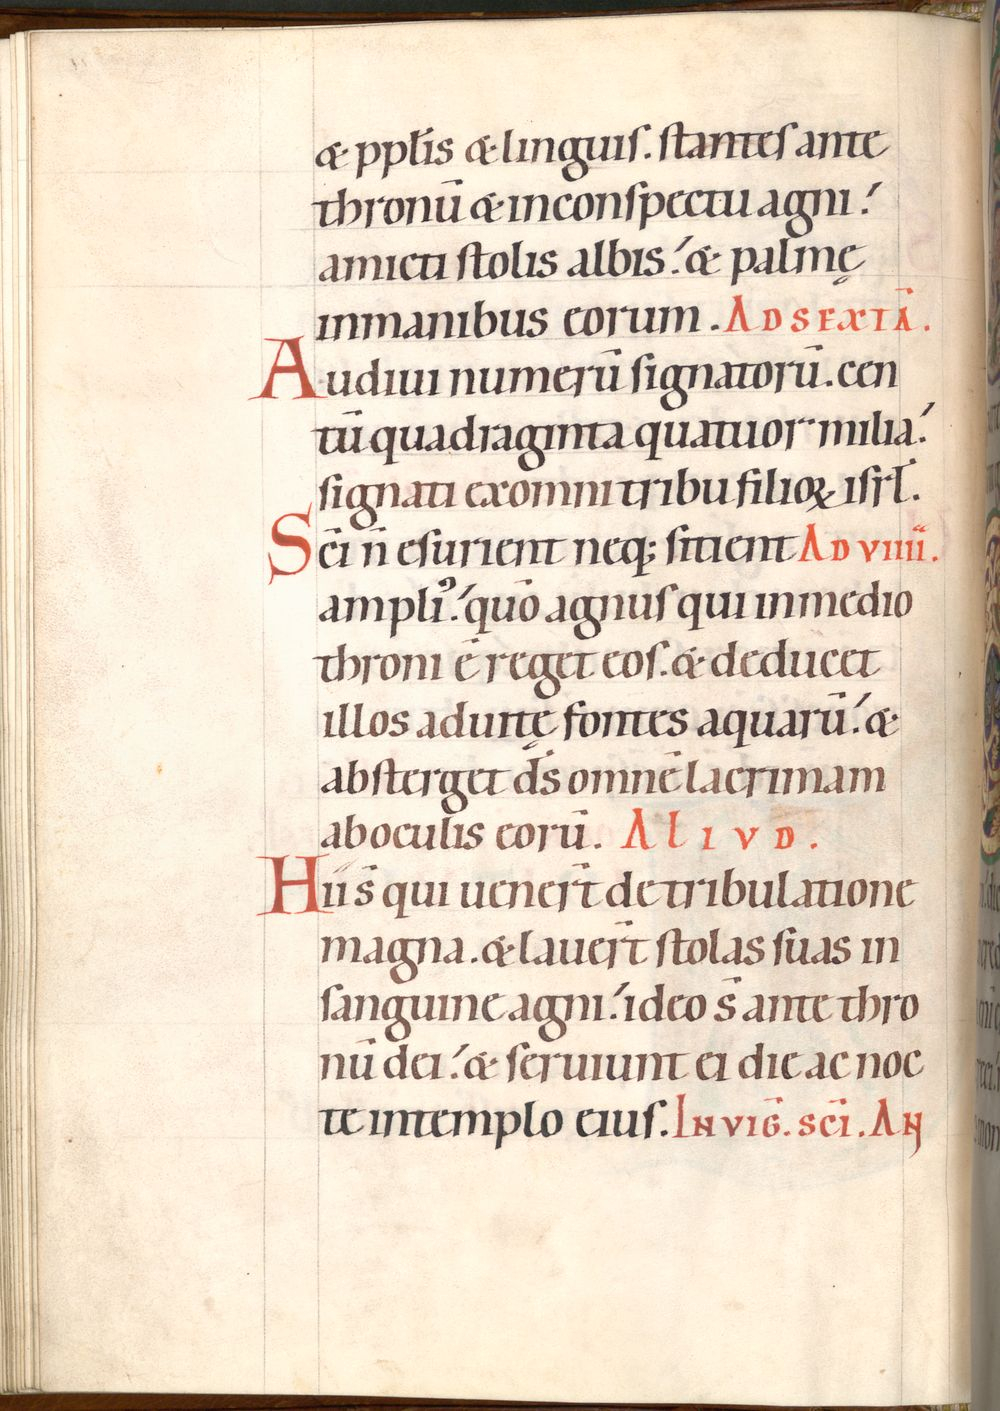 & pplīs & linguis. stantes ante
thronū & inconspectu agni.
amicti stolis albis. & palmę
inmanibus eorum. AD SEXTĀ.
Audiui numerū signatorū. cen
tū quadraginta quatuor milia.
signati exomni tribu filioꝝ isrl̄.
Sc̄i n̄ esurient neq; sitient AD VIIII.
ampli᾿. quō agnus qui inmedio
throni ē reget eos. & deducet
illos aduitę fontes aquarū. &
absterget d̄s omnē lacrimam
aboculis eorū. ALIVD.
Hii s̄ qui uener̄t detribulatione
magna. & lauer̄t stolas suas in
sanguine agni. ideo s̄ ante thro
nū dei. & seruiunt ei die ac noc
te intemplo eius. IN VIḠ. SC̄I. AN